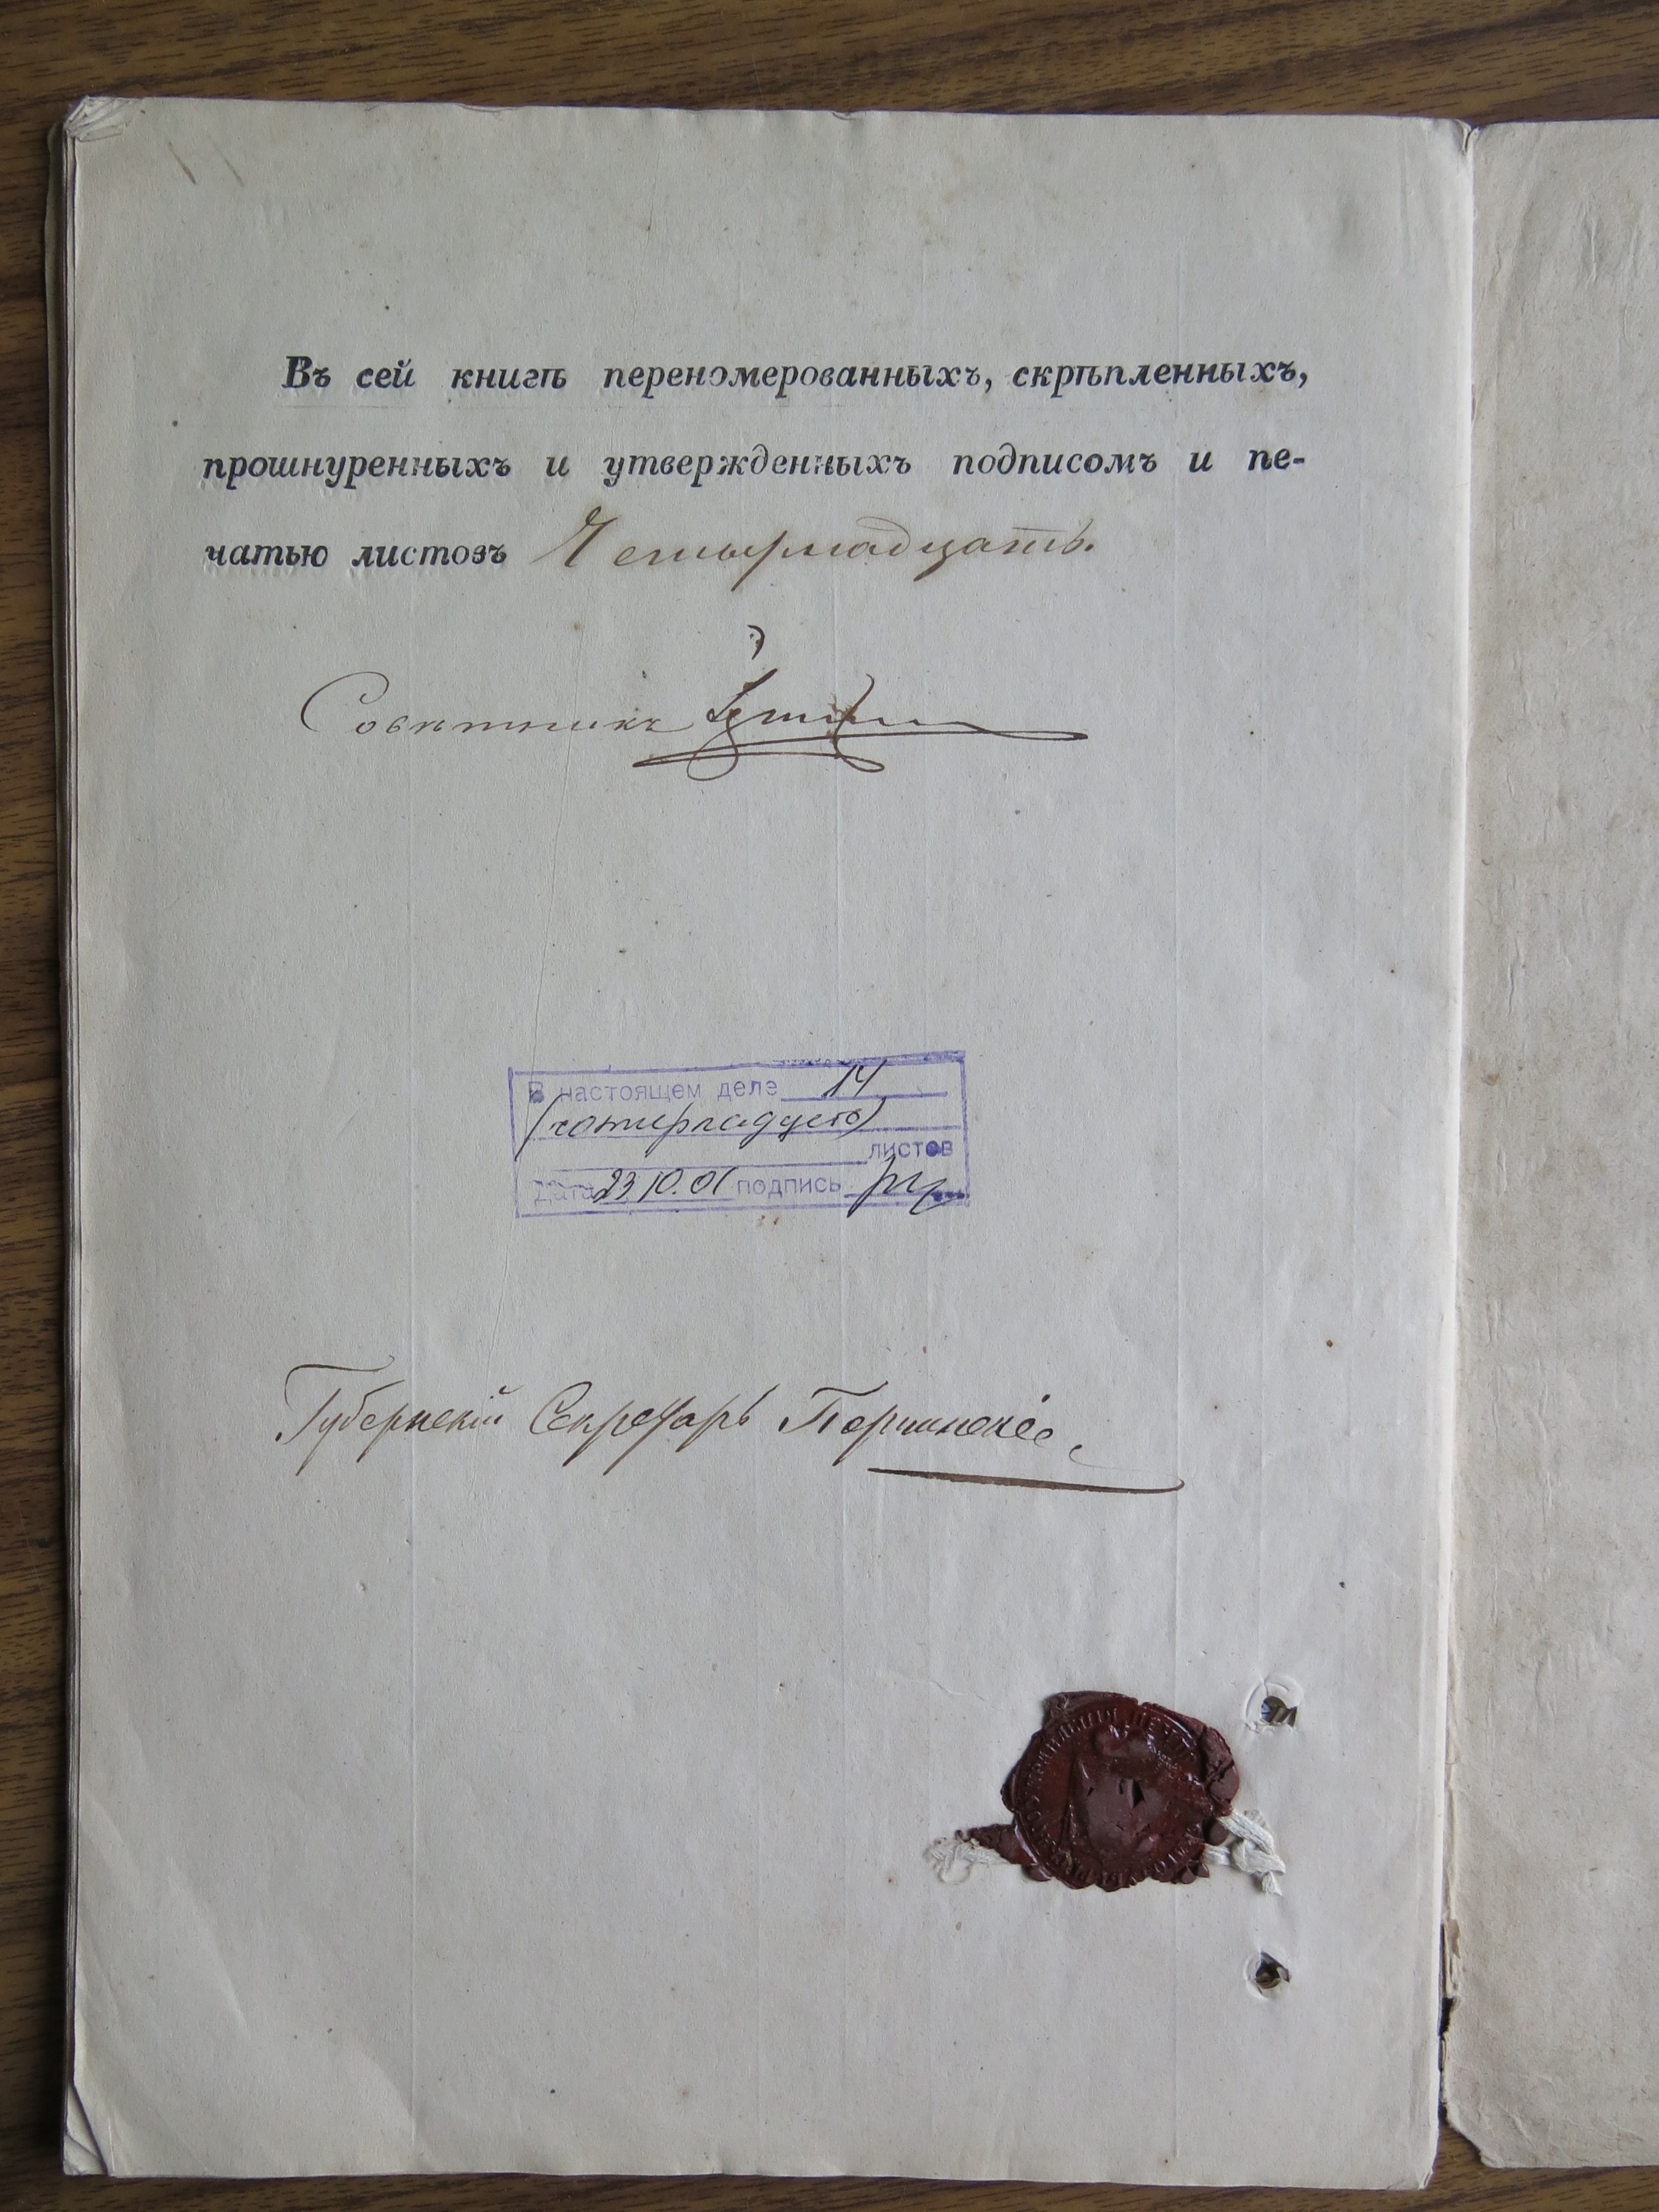 Въ сей книгѣ переномерованныхъ, скрѣпленныхъ,
прошнуренныхъ и утвержденныхъ подписомъ и пе-
чатью листовъ Четырнадцать.
Совѣтникъ
В настоящем деле 14
(чотирнадцять)
листов
Дата 23.10.01 подпись
Губернскій Секретарь